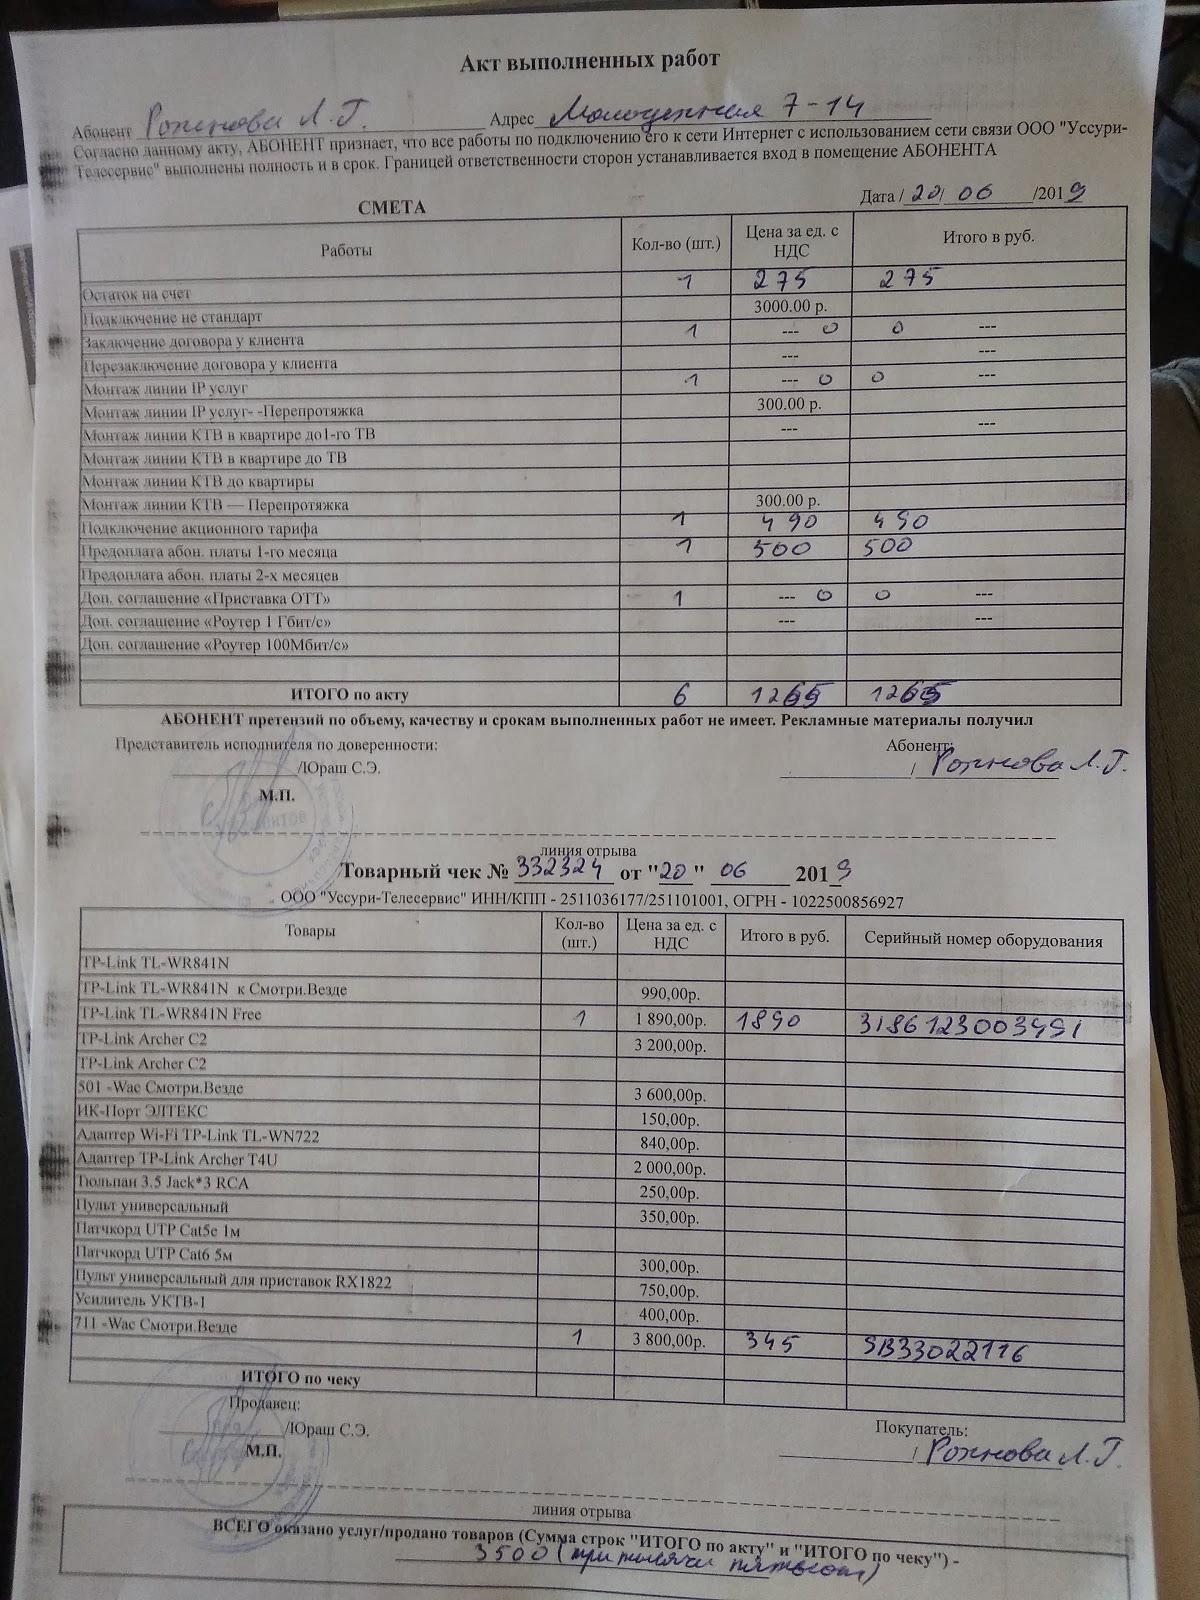 Акт выполненных работ
Абонент Рожнова Л.Г. Адрес Молодежная 7-14
Согласно данному акту, АБОНЕНТ признает, что все работы по подключению его к сети Интернет с использованием сети связи ООО "Уссури-
Телесервис" выполнены полность и в срок. Границей ответственности сторон устанавливается вход в помещение АБОНЕНТА
СМЕТА Дата /20/ 06 /2019
Работы Кол-во (шт.) Цена за ед. с НДС Итого в руб.
Остаток на счет 1 275 275
Подключение не стандарт 3000.00 р.
Заключение договора у клиента 1 --- 0 0 ---
Перезаключение договора у клиента --- ---
Монтаж линии IP услуг 1 --- 0 0 ---
Монтаж линии IP услуг- -Перепротяжка 300.00 р.
Монтаж линии КТВ в квартире до1-го ТВ --- ---
Монтаж линии КТВ в квартире до ТВ
Монтаж линии КТВ до квартиры
Монтаж линии КТВ — Перепротяжка 300.00 р.
Подключение акционного тарифа 1 490 490
Предоплата абон. платы 1-го месяца 1 500 500
Предоплата абон. платы 2-х месяцев
Доп. соглашение «Приставка ОТТ» 1 --- 0 0 ---
Доп. соглашение «Роутер 1 Гбит/с» --- ---
Доп. соглашение «Роутер 100Мбит/с»
ИТОГО по акту 6 1265 1265
АБОНЕНТ претензий по объему, качеству и срокам выполненных работ не имеет. Рекламные материалы получил
Представитель исполнителя по доверенности: Абонент:
/Юраш С.Э. / Рожнова Л.Г.
М.П.
линия отрыва
Товарный чек № 332324 от "20" 06 2019
ООО "Уссури-Телесервис" ИНН/КПП - 2511036177/251101001, ОГРН - 1022500856927
Товары Кол-во (шт.) Цена за ед. с НДС Итого в руб. Серийный номер оборудования
TP-Link TL-WR841N
TP-Link TL-WR841N к Смотри.Везде 990,00р.
TP-Link TL-WR841N Free 1 1 890,00р. 1890 3186123003491
TP-Link Archer C2 3 200,00р.
TP-Link Archer C2
501 -Wac Смотри.Везде 3 600,00р.
ИК-Порт ЭЛТЕКС 150,00р.
Адаптер Wi-Fi TP-Link TL-WN722 840,00р.
Адаптер TP-Link Archer T4U 2 000,00р.
Тюльпан 3.5 Jack*3 RCA 250,00р.
Пульт универсальный 350,00р.
Патчкорд UTP Cat5e 1м
Патчкорд UTP Cat6 5м 300,00р.
Пульт универсальный для приставок RX1822 750,00р.
Усилитель УКТВ-1 400,00р.
711 -Wac Смотри.Везде 1 3 800,00р. 345 SB33022116
ИТОГО по чеку
Продавец: Покупатель:
/Юраш С.Э. / Рожнова Л.Г.
М.П.
линия отрыва
ВСЕГО оказано услуг/продано товаров (Сумма строк "ИТОГО по акту" и "ИТОГО по чеку") -
3500 (три тысячи пятьсот)